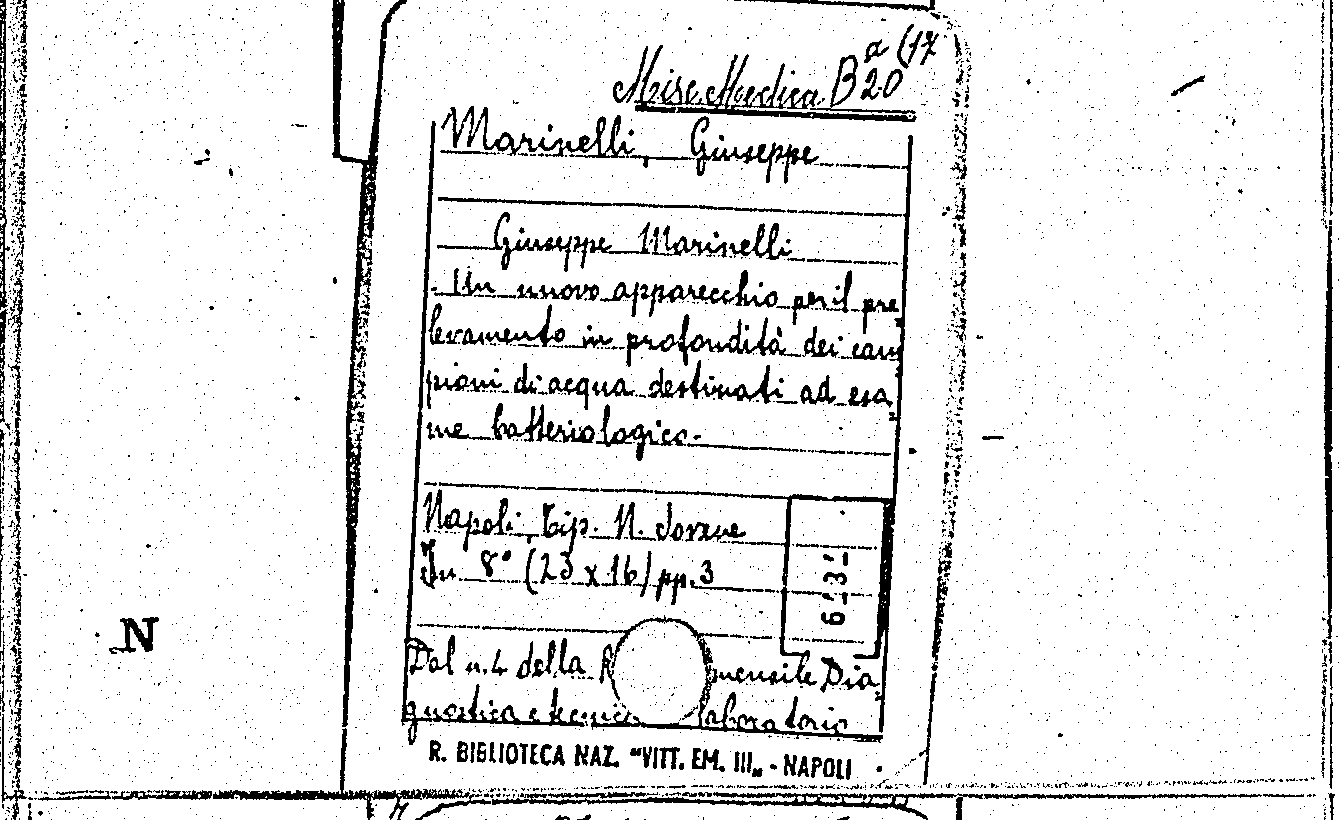 a (17
Misc. Medica B 20
Marinelli, Giuseppe
Giuseppe Marinelli
. Un nuovo apparecchio per il pre-
levamento in profondità dei cam-
pioni di acqua destinati ad esa-
me batteriologico.
Napoli, Tip. N. Jovene
In 8° (23 x 16) pp. 3
Dal n. 4 della mensile Dia-
gnostica e tecnic laboratorio
R. BIBLIOTECA NAZ. "VITT. EM. III„ - NAPOLI
N